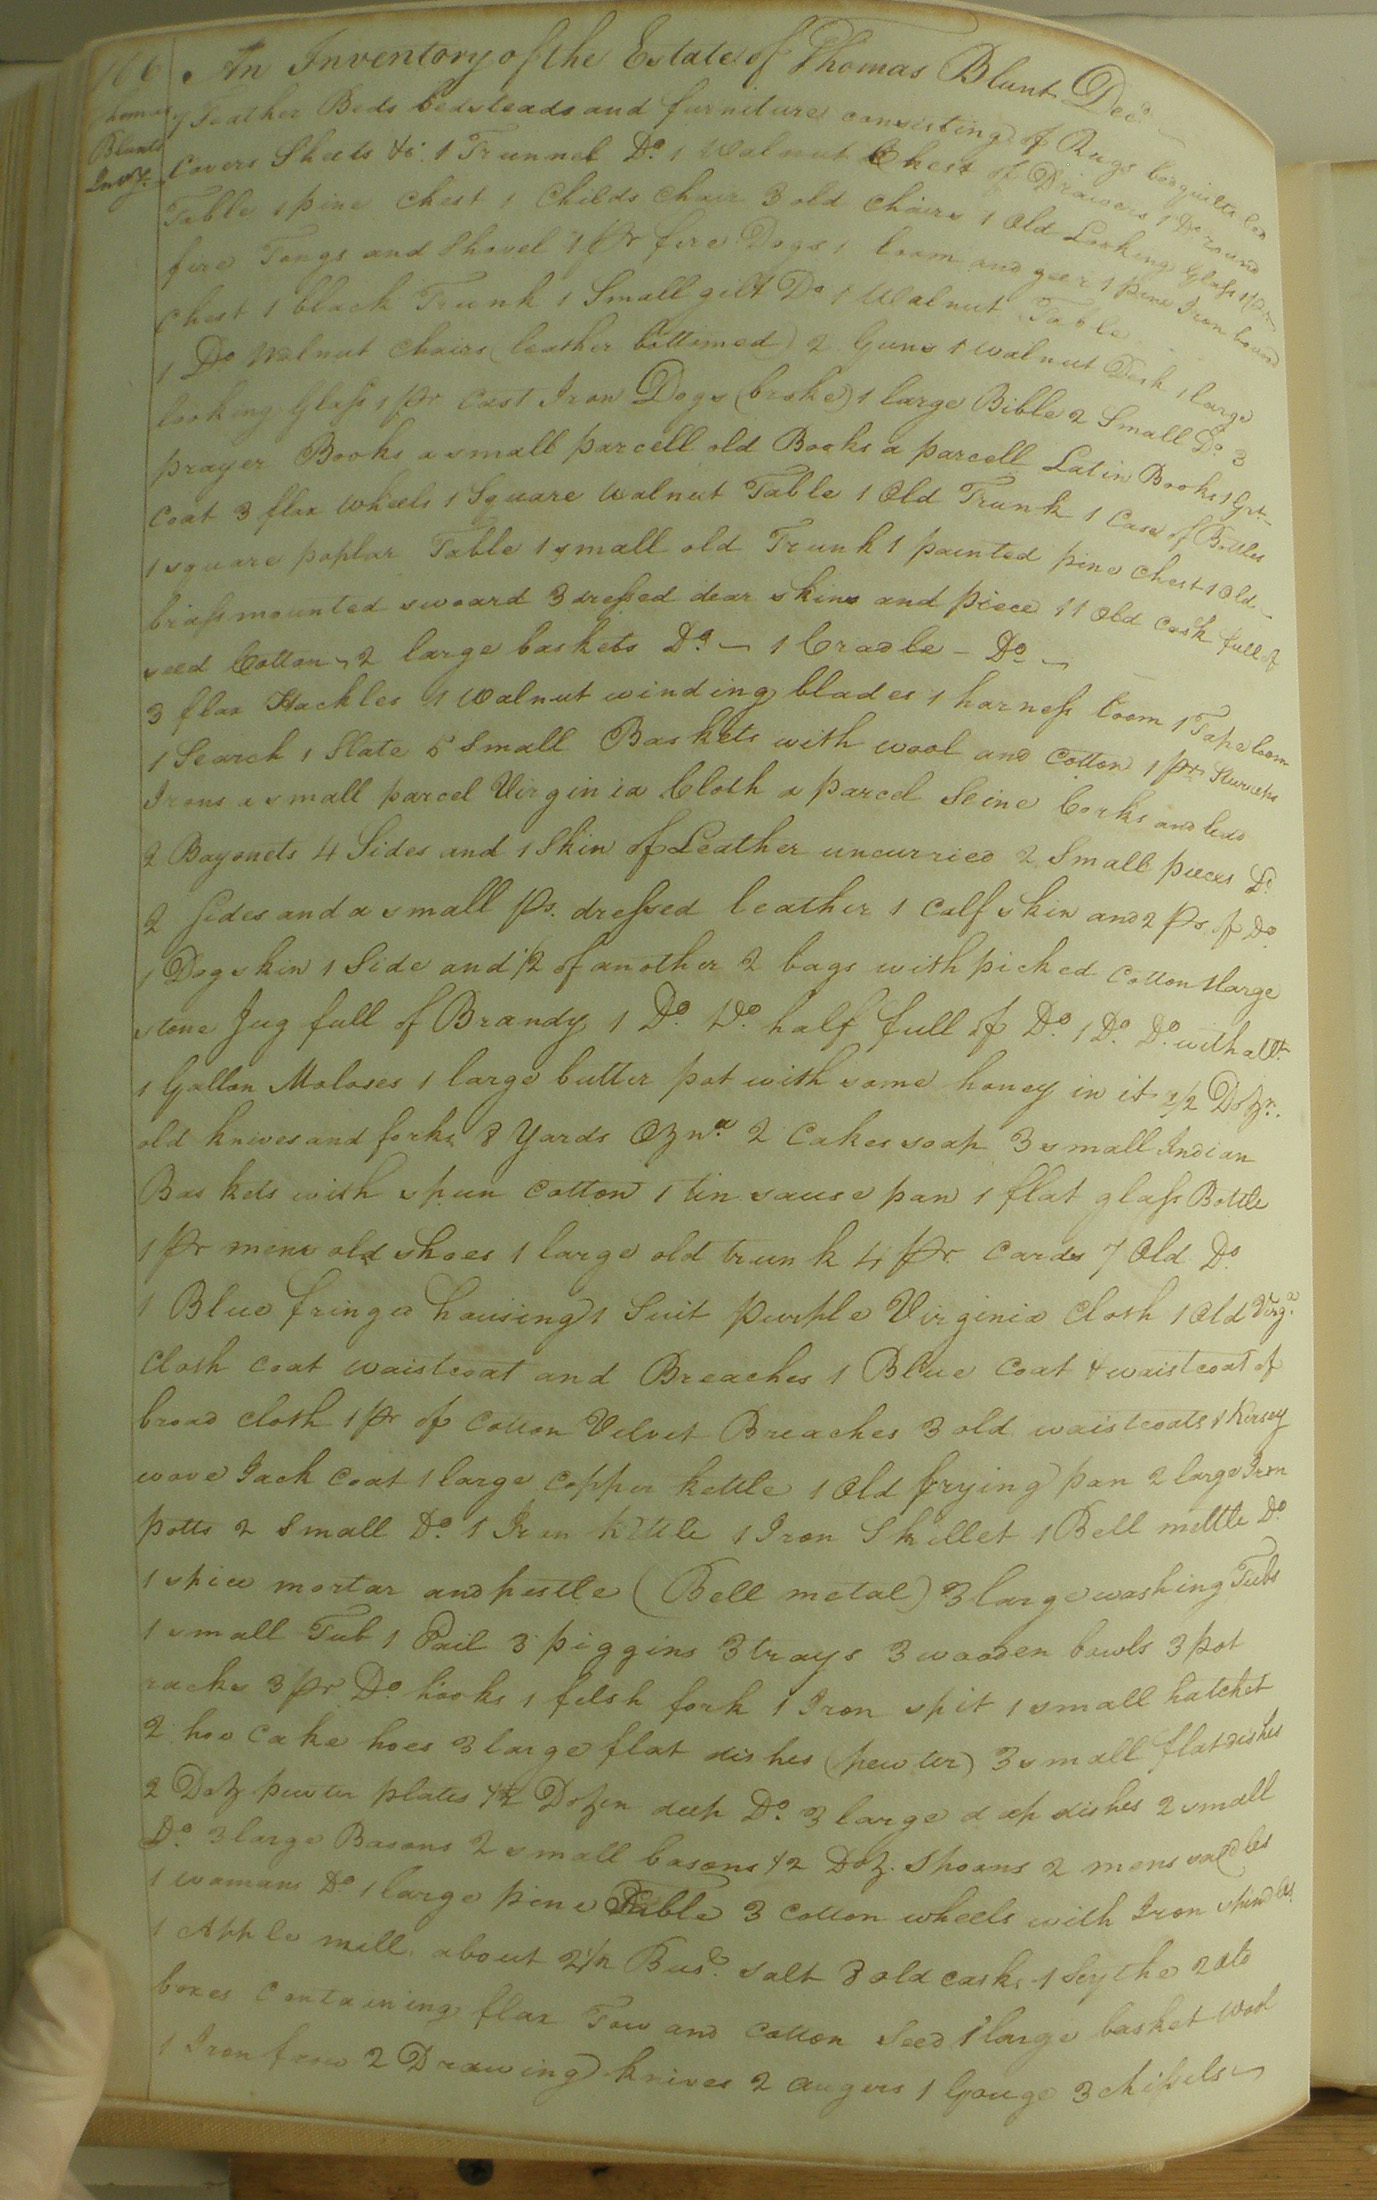 166
An Inventory of the Estate of Thomas Blunt Decd.
Thomas
Blunts
Invy.
7 Feather Beds bedsteads and furniture consisting of Rugs bedquilts bed
Covers Sheets &c. 1 Trunnel Do. 1 Walnut Chest of Drawers 1 Do round
Table 1 pine Chest 1 Childs Chair 3 old Chairs 1 Old Looking Glass 1 pr
fire Tongs and Shovel 1 pr fire Dogs 1 loom and geer 1 pine Iron bound
Chest 1 black Trunk 1 Small gilt Do 1 Walnut Table
1 Do Walnut Chairs (leather bottomed) 2 Guns 1 walnut Desk 1 large
looking Glass 1 pr cast Iron Dogs (broke) 1 large Bible 2 Small Do. 3
prayer Books a small parcell old Books a parcell Latin Books 1 Grt
Coat 3 flax wheels 1 Square walnut Table 1 Old Trunk 1 Case of Bottles
1 square poplar Table 1 small old Trunk 1 painted pine Chest 1 Old
brass mounted sword 3 dressed dear skins and piece 11 Old Cask full of
seed Cotton 2 large baskets Do. 1 Cradle - Do
3 flax Hackles 1 Walnut winding blades 1 harness loom 1 Tape loom
1 Search 1 Slate 5 Small Baskets with wool and Cotton 1 pr
Irons a small parcel Virginia Cloth a parcel Seine Corks and leads
2 Bayonets 4 Sides and 1 Skin of Leather uncurried 2 Small pieces Do.
2 Sides and a small ps. dressed leather 1 Calf skin and 2 ps. of Do.
1 Dogskin 1 Side and 1/2 of another 2 bags with picked Cotton 1 large
stone Jug full of Brandy 1 Do. Do. half full of Do. 1 Do. Do. with abt
1 Gallon Moloses 1 large butter pot with some honey in it 1/2 Dozn.
old knives and forks 8 Yards Ozna 2 Cakes soap 3 small Indian
Baskets with spun Cotton 1 tin sause pan 1 flat glass Bottle
1 pr mens old shoes 1 large old trunk 4 pr. Cards 7 Old Do
1 Blue fringed housing 1 Suit purple Virginia Cloth 1 Old Virga.
Cloth Coat waistcoat and Breaches 1 Blue Coat & waistcoat of
broad Cloth 1 pr of Cotton Velvet Breaches 3 old waistcoats 1 Kersey
wove Jack Coat 1 large Copper kettle 1 Old frying pan 2 large Iron
potts 2 Small Do. 1 Iron Kittle 1 Iron Skillet 1 Bell mettle Do
1 spice mortar and pestle (Bell metal) 3 large washing Tubs
1 small Tub 1 Pail 3 piggins 3 trays 3 wooden bowls 3 pot
racks 3 pr Do. hooks 1 flesh fork 1 Iron spit 1 small hatchet
2 hoe Cake hoes 3 large flat dishes (pewter) 3 small flat dishes
2 Doz pewter plates 1/2 Dozen deep Do. 3 large deep dishes 2 small
Do. 3 large Basons 2 small basons 1/2 Doz. Spoons 2 mens saddles
1 womans Do 1 large pine Table 3 Cotton wheels with Iron spindles.
1 Apple mill about 2 1/2 Buss. salt 3 old casks 1 Scythe 2 old
boxes Containing flax Tow and Cotton Seed 1 large basket Wool
1 Iron frow 2 Drawing knives 2 augers 1 Gouge 3 Chissels